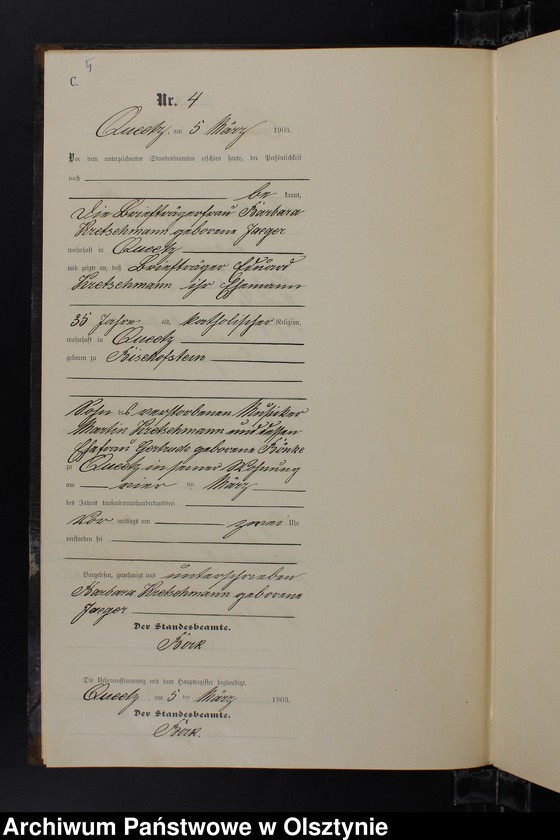 5
C.
Nr. 4
Queetz, am 5 März 1903.
Vor dem unterzeichneten Standesbeamten erschien heute, der Persönlichkeit
nach
be kannt,
Die Briefträgerfrau Barbara
Kretschmann geborene Jaeger
wohnhaft in Queetz
und zeigte an, daß Briefträger Eduard
Kretschmann ihr Ehemann
35 Jahre alt, katholischer Religion,
wohnhaft in Queetz
geboren zu Bischofstein
Sohn des verstorbenen Musiker
Martin Kretschmann und dessen
Ehefrau Gertrude geborene
zu Queetz in seiner Wohnung
am vier ten März
des Jahres tausendneunhundertunddrei
Vor mittags um zwei Uhr
verstorben sei
Vorgelesen, genehmigt und unterschrieben
Barbara Kretschmann geborene
Jaeger
Der Standesbeamte.
Börk
Die Uebereinstimmung mit dem Hauptregister beglaubigt,
Queetz am 5 ten März 1903.
Der Standesbeamte.
Börk.
Archiwum Państwowe w Olsztynie